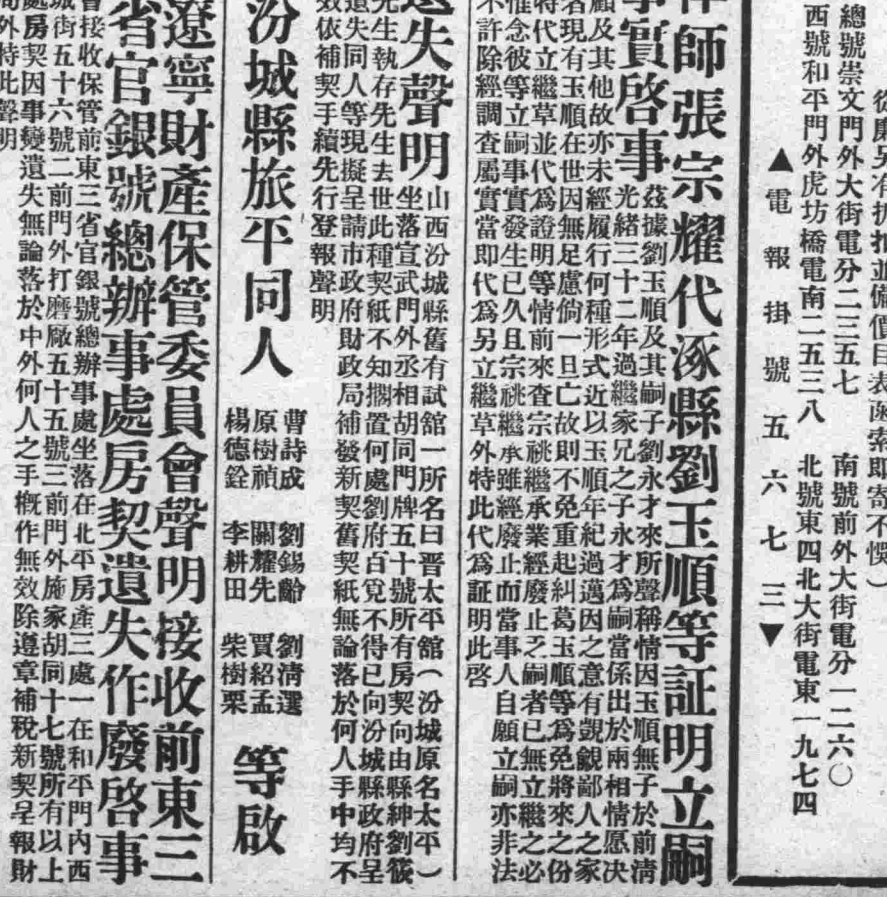 總號崇文門外大街電分二三五七 南號前外大街電分一二六〇
西號和平門外虎坊橋電南二五三八 北號東四北大街電東一九七四
▲電報掛號五六七三▼
師張宗耀代涿縣劉玉順等証明立嗣
事實啓事
茲據劉玉順及其嗣子劉永才來所聲稱情因玉順無子於前淸
光緒三十二年過繼家兄之子永才爲嗣當係出於兩相情愿决
顧及其他故亦未經履行何種形式近以玉順年紀過邁因之意有覬覦鄙人之家
者現有玉順在世因無足慮倘一旦亡故則不免重起糾葛玉順等爲免將來之份
特代立繼草並代爲證明等情前來查宗祧繼承業經廢止之嗣者已無立繼之必
惟念彼等立嗣事實發生已久且宗祧繼承雖經廢止而當事人自願立嗣亦非法
不許除經調査屬實當即代爲另立繼草外特此代爲証明此啓
遺失聲明
山西汾城縣舊有試舘一所名曰晋太平舘(汾城原名太平)
坐落宣武門外丞相胡同門牌五十號所有房契向由縣紳劉筱
先生執存先生去世此種契紙不知擱置何處劉府百覓不得已向汾城縣政府呈
遺失同人等現擬呈請市政府財政局補發新契舊契紙無論落於何人手中均不
效依補契手續先行登報聲明
汾城縣旅平同人
曹詩成 劉錫齡 劉淸選
原樹禎 關耀先 賈紹孟
楊德銓 李耕田 柴樹栗
等啟
遼寧財產保管委員會聲明接收前東三
省官銀號總辦事處房契遺失作廢啓事
會接收保管前東三省官銀號總辦事處坐落在北平房產三處一在和平門內西
城街五十六號二前門外打磨廠五十五號三前門外施家胡同十七號所有以上
處房契因事變遺失無論落於中外何人之手槪作無效除遵章補稅新契呈報財
局外特此聲明